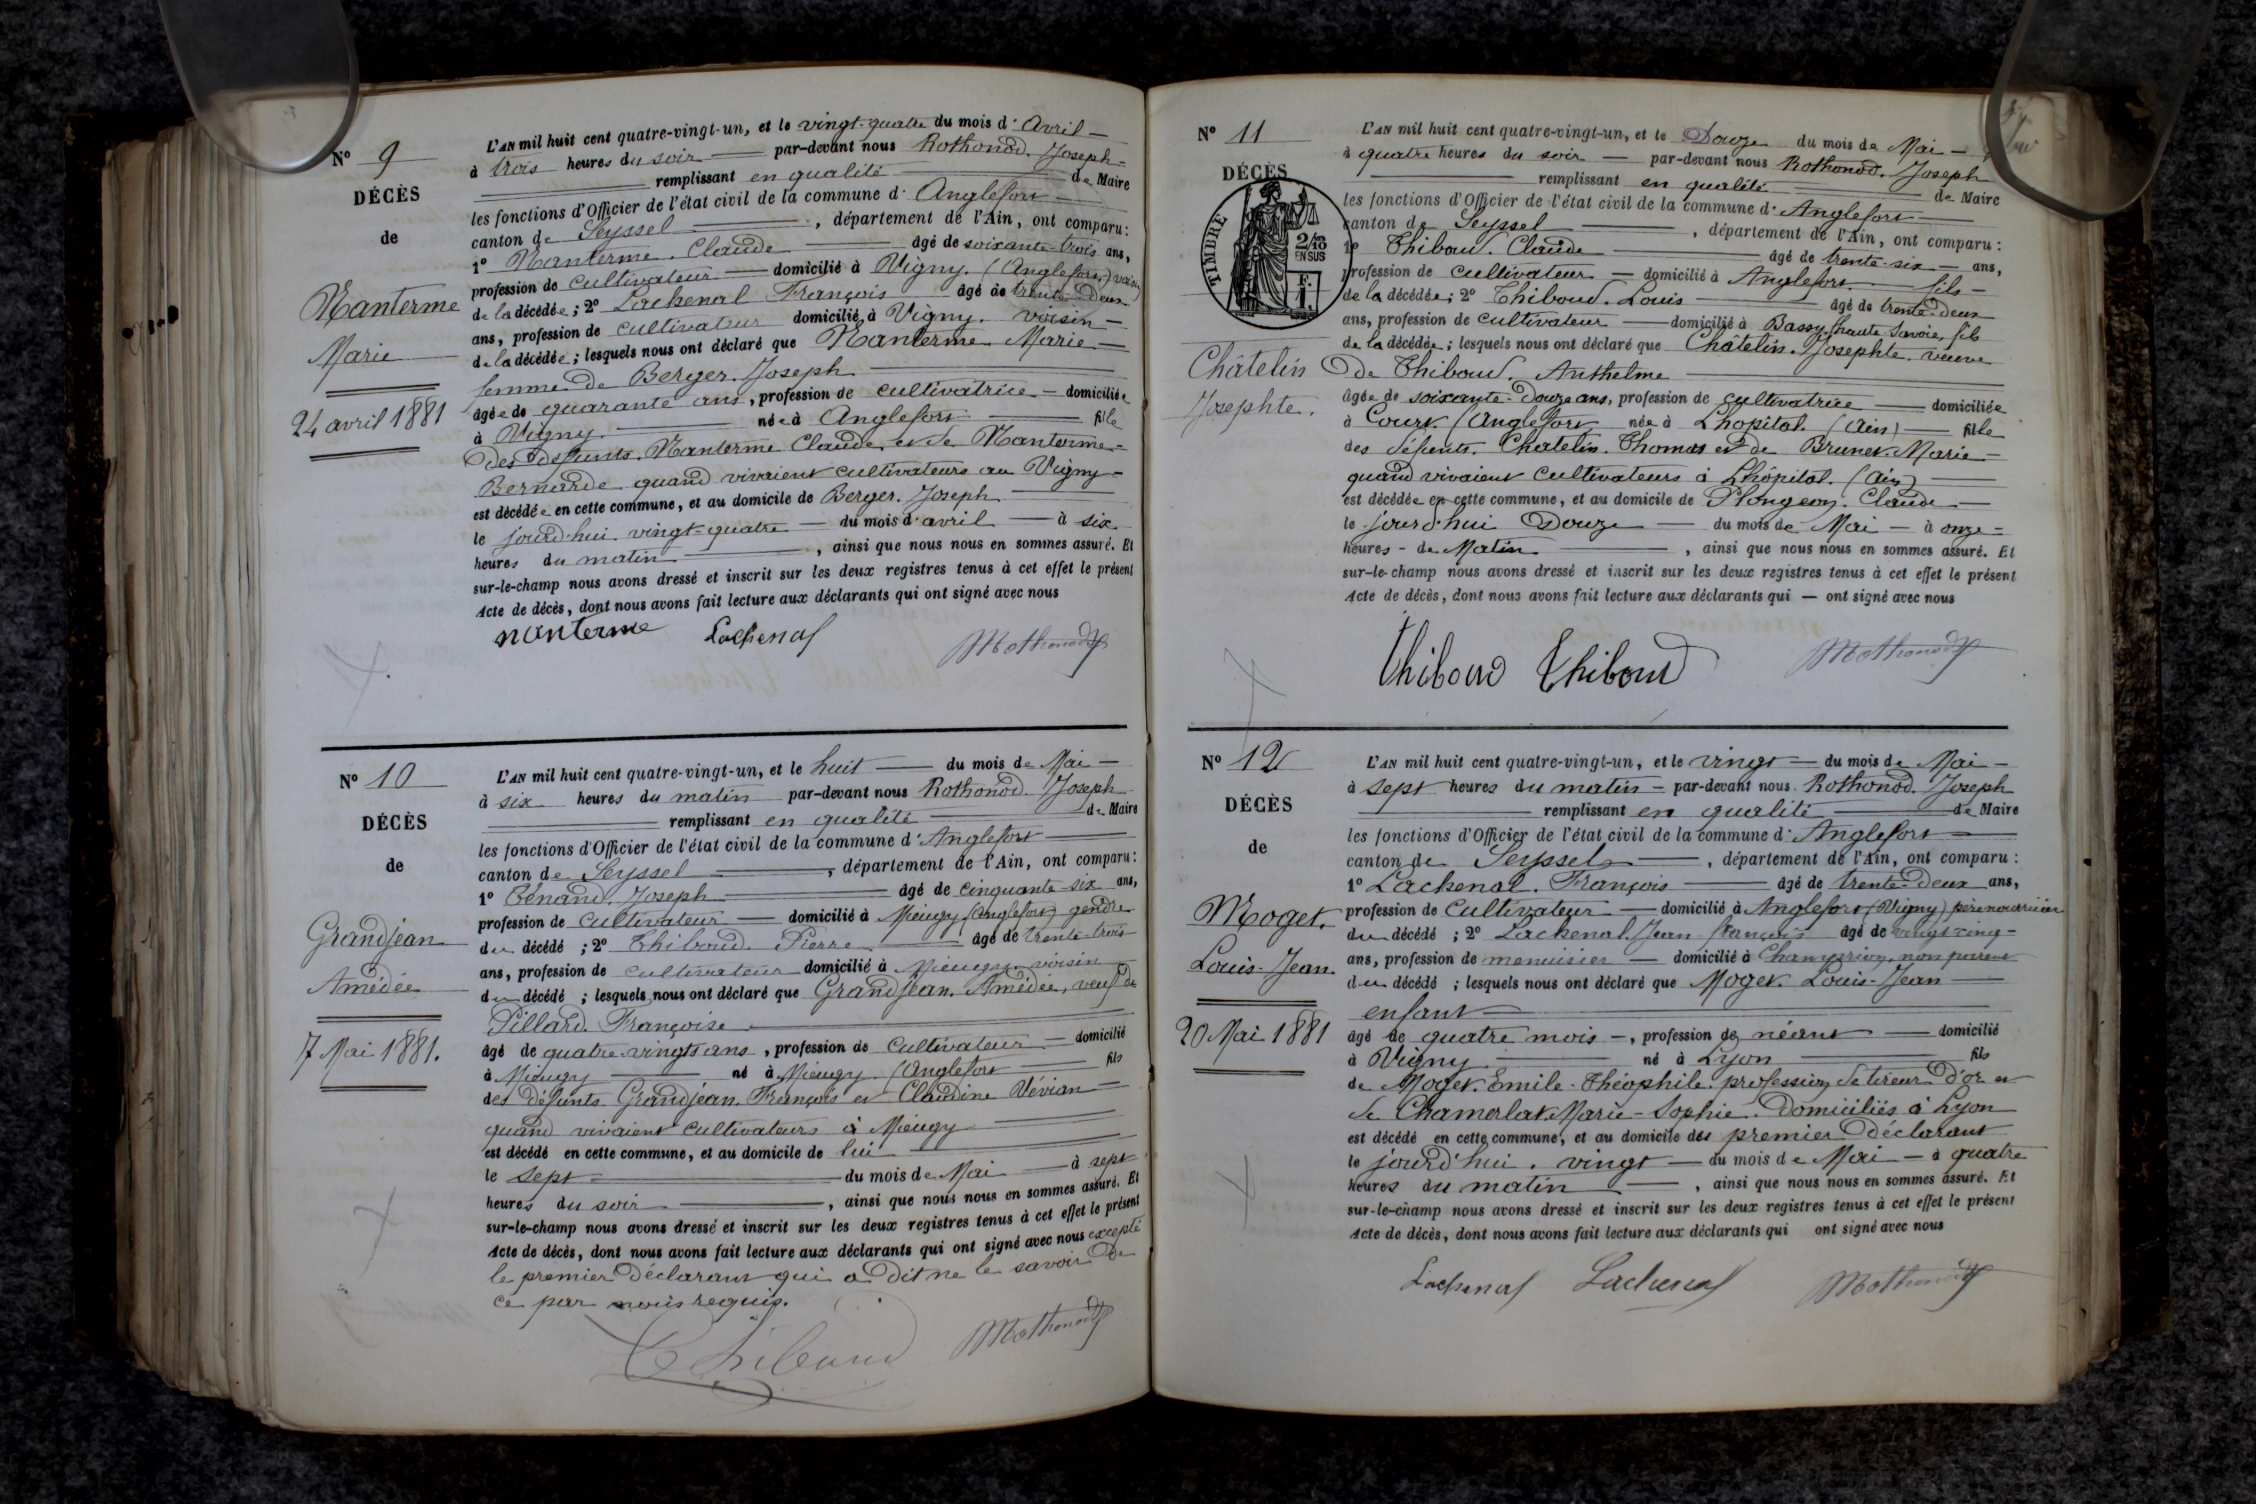 N° 9
DÉCÈS
de
Nanterme
Marie
24 avril 1881
L'AN mil huit cent quatre-vingt-un, et le vingt-quatre du mois d'Avril
à trois heures du soir par-devant nous Rothonod. Joseph
remplissant en qualité de Maire
les fonctions d'Officier de l'état civil de la commune d'Anglefort
canton de Seyssel, département de l'Ain, ont comparu:
1° Nanterme. Claude âgé de soixante-trois ans,
profession de cultivateur domicilié à Vigny. (Anglefort) voisin
de la décédée; 2° Lachenal François âgé de trente-deux
ans, profession de cultivateur domicilié à Vigny. voisin
de la décédée; lesquels nous ont déclaré que Nanterme Marie
femme de Berger. Joseph
âgée de quarante ans, profession de cultivatrice domiciliée
à Vigny née à Anglefort fille
des défunts. Nanterme Claude et de Nanterme
Bernarde quand vivaient cultivateurs au Vigny
est décédée en cette commune, et au domicile de Berger. Joseph
le jourd'hui vingt-quatre du mois d'avril à six
heures du matin, ainsi que nous nous en sommes assuré. Et
sur-le-champ nous avons dressé et inscrit sur les deux registres tenus à cet effet le présent
Acte de décès, dont nous avons fait lecture aux déclarants qui ont signé avec nous
nanterme Lachenal Rothonod
N° 10
DÉCÈS
de
Grandjean
Amédée
7 Mai 1881.
L'AN mil huit cent quatre-vingt-un, et le huit du mois de Mai
à six heures du matin par-devant nous Rothonod. Joseph
remplissant en qualité de Maire
les fonctions d'Officier de l'état civil de la commune d'Anglefort
canton de Seyssel, département de l'Ain, ont comparu:
1° Bénand. Joseph âgé de cinquante-six ans,
profession de cultivateur domicilié à Mieugy (Anglefort) gendre
du décédé; 2° Thiboud. Pierre âgé de trente-trois
ans, profession de cultivateur domicilié à Mieugy. voisin
du décédé; lesquels nous ont déclaré que Grandjean. Amédée, veuf de
Pillard. Françoise
âgé de quatre-vingts ans, profession de cultivateur domicilié
à Mieugy né à Mieugy (Anglefort fils
des défunts Grandjean. François et Claudine Vévian
quand vivaient cultivateurs à Mieugy
est décédé en cette commune, et au domicile de lui
le sept du mois de Mai à sept
heures du soir, ainsi que nous nous en sommes assuré. Et
sur-le-champ nous avons dressé et inscrit sur les deux registres tenus à cet effet le présent
Acte de décès, dont nous avons fait lecture aux déclarants qui ont signé avec nous excepté
le premier déclarant qui a dit ne le savoir de
ce par nous requis.
Thiboud Rothonod
N° 11
DÉCÈS
TIMBRE
2/10 EN SUS
F. 1.
Châtelin
Josephte.
L'AN mil huit cent quatre-vingt-un, et le Douze du mois de Mai
à quatre heures du soir par-devant nous Rothonod. Joseph
remplissant en qualité de Maire
les fonctions d'Officier de l'état civil de la commune d'Anglefort
canton de Seyssel, département de l'Ain, ont comparu:
1° Thiboud. Claude âgé de trente-six ans,
profession de cultivateur domicilié à Anglefort. fils
de la décédée; 2° Thiboud. Louis âgé de trente-deux
ans, profession de cultivateur domicilié à Bassy, haute Savoie, fils
de la décédée; lesquels nous ont déclaré que Châtelin. Josephte. veuve
de Thiboud. Anthelme
âgée de soixante-Douze ans, profession de cultivatrice domiciliée
à Court (Anglefort née à Lhôpital. (Ain) fille
des défunts. Chatelin. Thomas et de Brunet. Marie
quand vivaient cultivateurs à Lhôpital. (Ain)
est décédée en cette commune, et au domicile de Plongeon. Claude
le jourd'hui Douze du mois de Mai à onze
heures de Matin, ainsi que nous nous en sommes assuré. Et
sur-le-champ nous avons dressé et inscrit sur les deux registres tenus à cet effet le présent
Acte de décès, dont nous avons fait lecture aux déclarants qui ont signé avec nous
Thiboud Thiboud Rothonod
N° 12
DÉCÈS
de
Moget.
Louis-Jean
20 Mai 1881
L'AN mil huit cent quatre-vingt-un, et le vingt du mois de Mai
à sept heures du matin par-devant nous Rothonod. Joseph
remplissant en qualité de Maire
les fonctions d'Officier de l'état civil de la commune d'Anglefort
canton de Seyssel, département de l'Ain, ont comparu:
1° Lachenal. François âgé de trente-deux ans,
profession de cultivateur domicilié à Anglefort (Vigny) père nourricier
du décédé; 2° Lachenal. Jean-François âgé de vingt-cinq
ans, profession de menuisier domicilié à Champriond, non parent
du décédé; lesquels nous ont déclaré que Moget. Louis-Jean
enfant
âgé de quatre mois, profession de néant domicilié
à Vigny né à Lyon fils
de Moget. Emile-Théophile. profession de tireur d'or et
de Chamerlat Marie-Sophie. Domiciliés à Lyon
est décédé en cette commune, et au domicile du premier déclarant
le jourd'hui. vingt du mois de Mai à quatre
heures du matin, ainsi que nous nous en sommes assuré. Et
sur-le-champ nous avons dressé et inscrit sur les deux registres tenus à cet effet le présent
Acte de décès, dont nous avons fait lecture aux déclarants qui ont signé avec nous
Lachenal Lachenal Rothonod